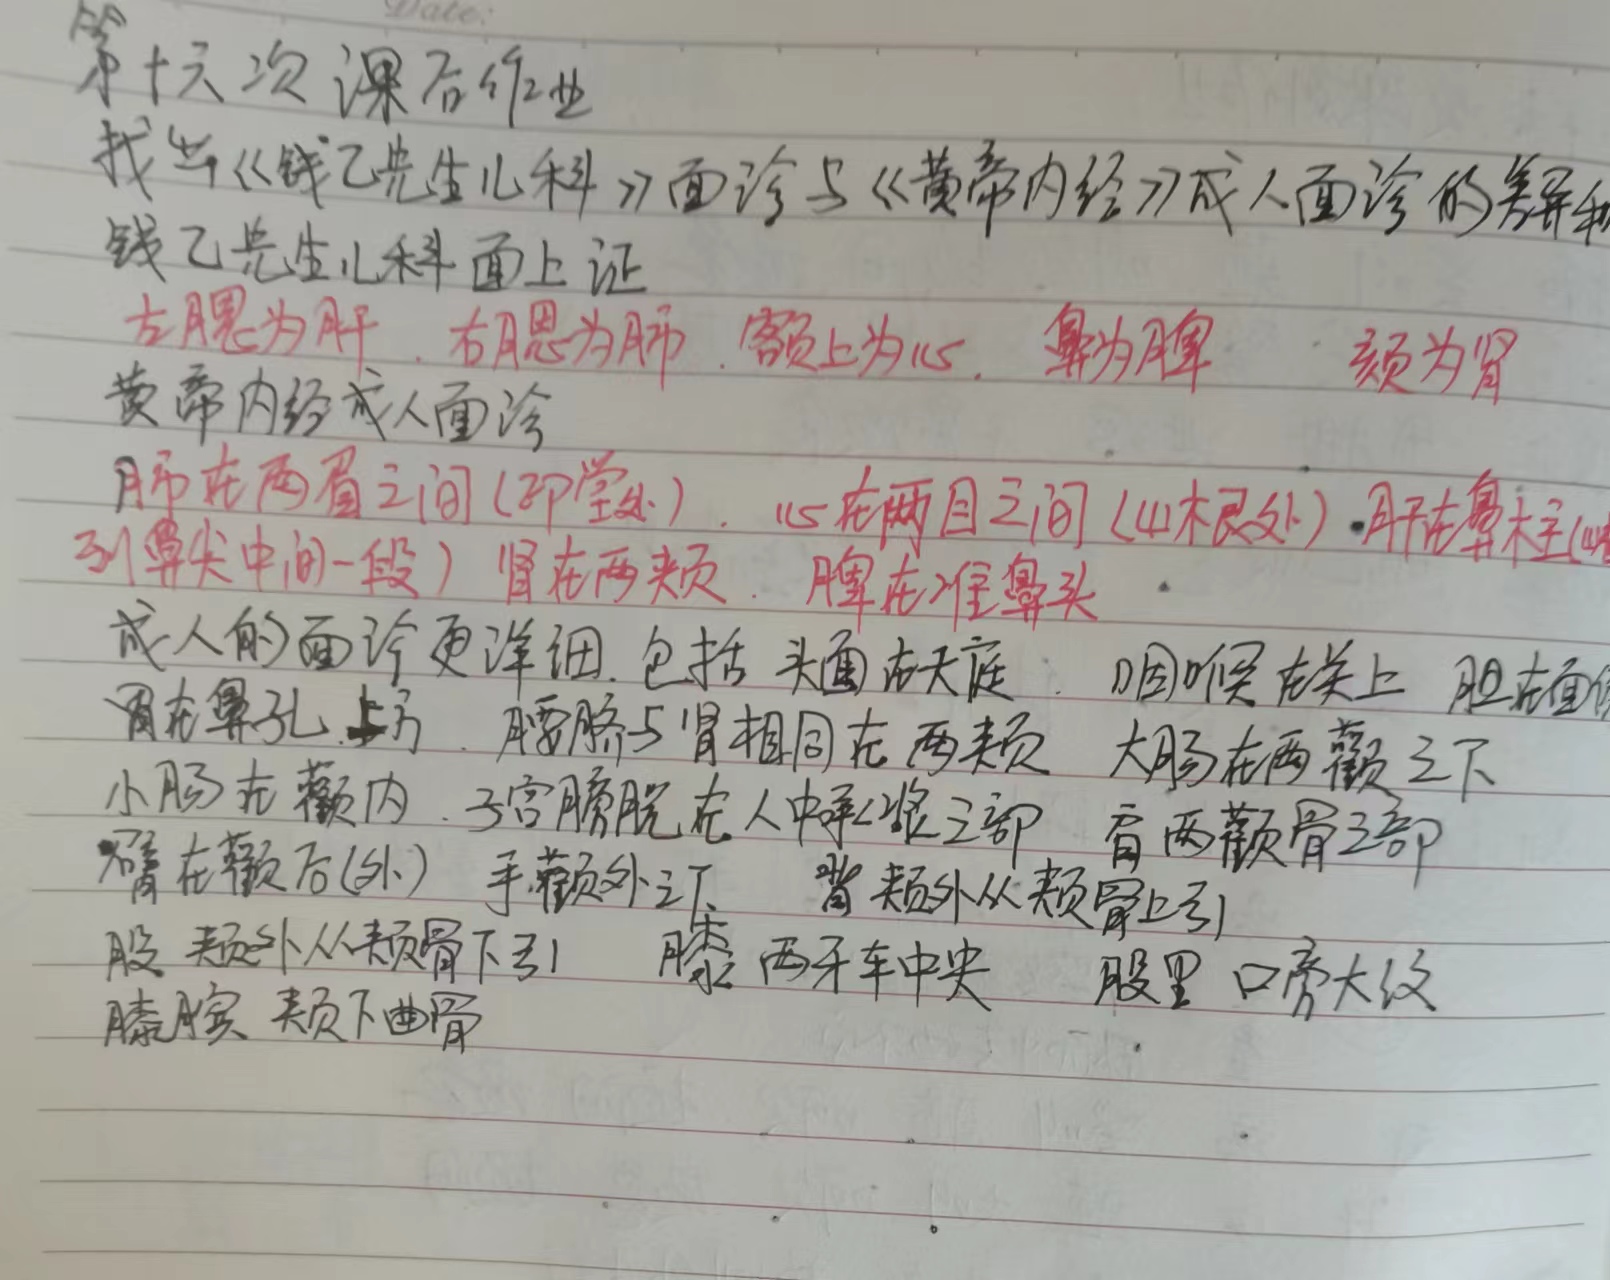 Date:
第十六次课后作业
找出《钱乙先生儿科》面诊与《黄帝内经》成人面诊的差异和
钱乙先生儿科面上证
左腮为肝.右腮为肺.额上为心.鼻为脾 颏为肾
黄帝内经成人面诊
肺在两眉之间(印堂处).心在两目之间(山根处).肝在鼻柱(山根
到鼻尖中间一段)肾在两颊.脾在准鼻头
成人的面诊更详细.包括头面在天庭.咽喉在关上 胆在面
胃在鼻孔上方.腰脐与肾相同在两颊 大肠在两颧之下
小肠在颧内.子宫膀胱在人中承浆之部 肩两颧骨之部
臂在颧后(外) 手颧外之下 背颊外从颊骨上引
股 颊外从颊骨下引 膝 两牙车中央 股里 口旁大纹
膝膑 颊下曲骨